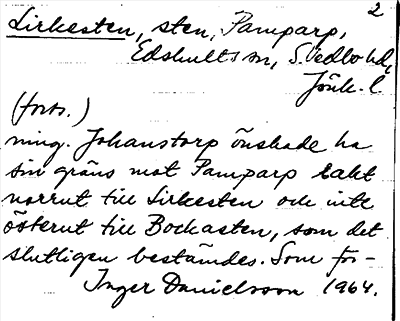 2
Lirkesten, sten, Pamparp,
Edshults sn, S. Vedbo hd,
Jönk. l.
(forts.)
ning. Johanstorp önskade ha
sin gräns mot Pamparp rakt
norrut till Lirkesten och inte
österut till Bockasten, som det
slutligen bestämdes. Som for-
Inger Danielsson 1964.